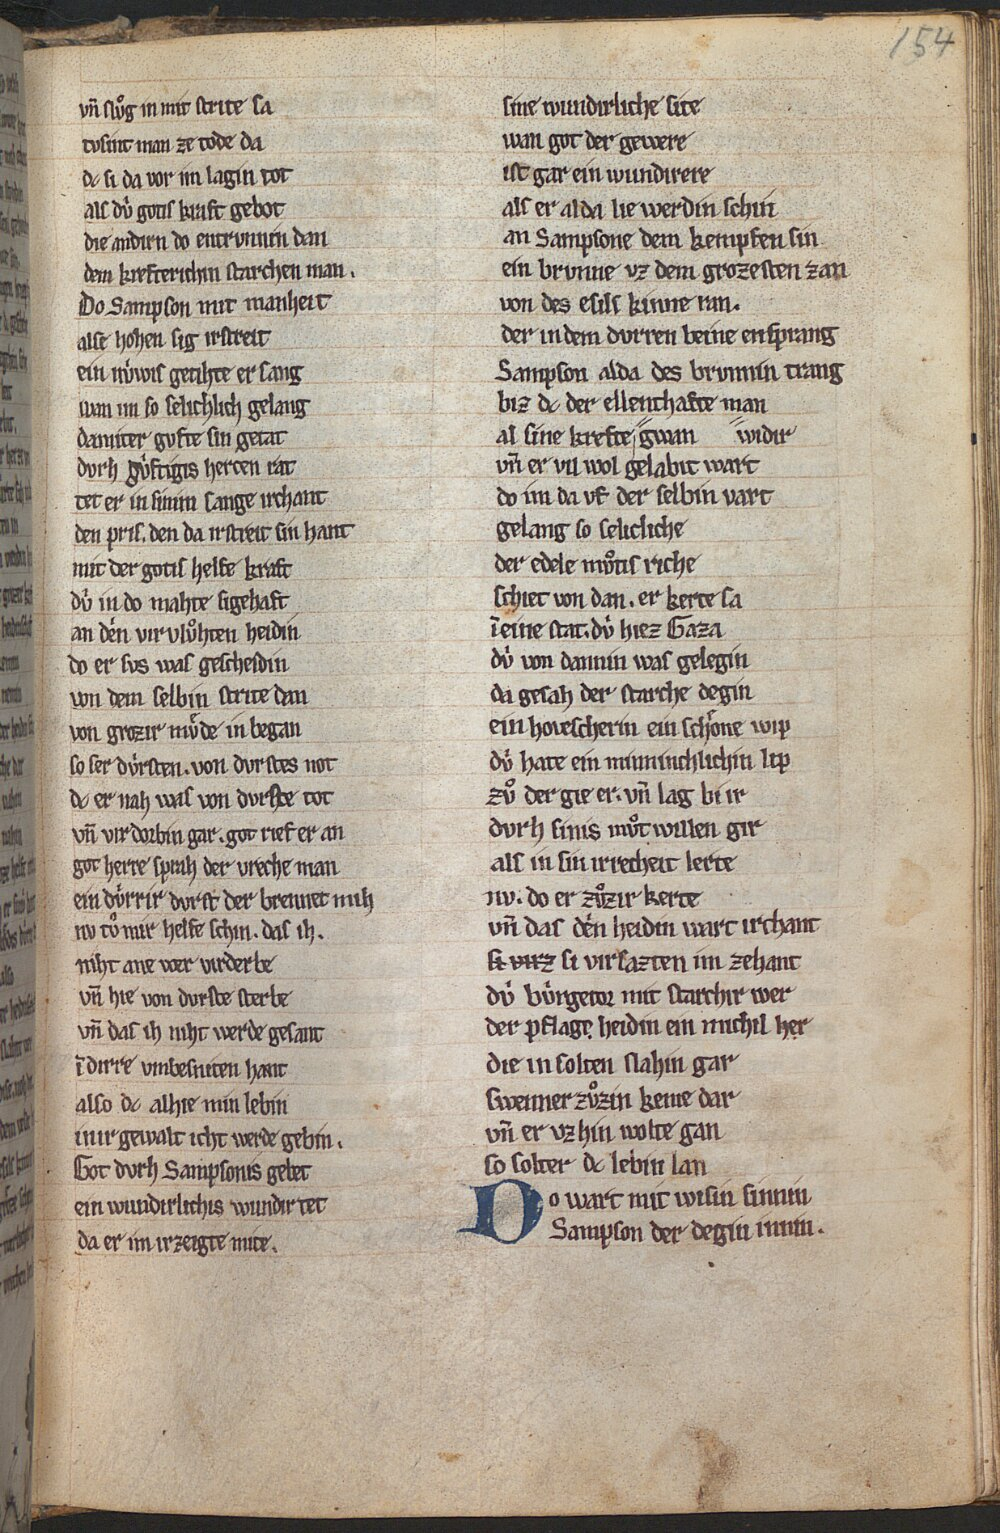 154
vn̄ slůg in mit strite sa
tvsint man ze tode da
dc si da vor im lagin tot
als dv́ gotis kraft gebot
die andirn do entrvnnin dan
dem krefterichin starchen man.
Do Sampson mit manheit
alse hohen sig irstreit
ein núwis getihte er sang
wan im so selichlich gelang
damiter gvfte sin getat
dvrh gv́ftigis hercen rat
tet er in sinim sange irchant
den pris. den da irstreit sin hant
mit der gotis helfe kraft
dv́ in do mahte sigehaft
an dén virvlůhten heidin
do er svs was gescheidin
von dem selbin strite dan
von grozir mv́de in began
so ser dv́rsten. von dvrstes not
dc er nah was von dvrste tot
vn̄ virdorbin gar. got rief er an
got herre sprah der vreche man
ein dv́rrir dvrst der brennet mih
nv tů mir helfe schin. das ih.
niht ane wer virderbe
vn̄ hie von dvrste sterbe
vn̄ das ih niht werde gesant
ī dirre vnbesniten hant
also dc alhie min lebin
in ir gewalt icht werde gebin.
Got dvrh Sampsonis gebet
ein wundirlichis wundir tet
da er im irzeigte mite.
sine wundirliche site
wan got der gewere
ist gar ein wundirere
als er alda lie werdin schin
an Sampsone dem kempfen sin
ein brvnne vz dem grozesten zan
von des esils kinne ran.
der in dem dvrren beine ensprang
Sampson alda des brvnnin trang
biz dc der ellenthafte man
al sine krefte gwan widir
vn̄ er vil wol gelabit wart
do im da vf der selbin vart
gelang so selicliche
der edele můtis riche
schiet von dan. er kerte sa
ī eine stat. dv́ hiez Gaza
dv́ von dannin was gelegin
da gesah der starche degin
ein hovescherin ein schone wip
dv́ hate ein minnichlichin lip
zů der gie er. vn̄ lag bi ir
dvrh sinis můtwillen gir
als in sin irrecheit lerte
nv. do er zůzir kerte
vn̄ das dén heidin wart irchant
si virsazten im zehant
dv́ bv́rgetor mit starchir wer
der pflage heidin ein michil her
die in solten slahin gar
swenner zůzin keme dar
vn̄ er vz hin wolte gan
so solter dc lebin lan
Do wart mit wisin sinnin
Sampson der degin innin.